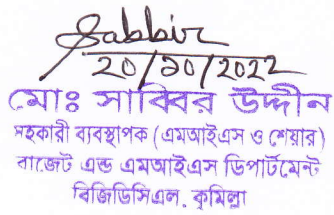 Sabbir
20/10/2022
মোঃ সাব্বির উদ্দীন
সহকারী ব্যবস্থাপক (এমআইএস ও শেয়ার)
বাজেট এন্ড এমআইএস ডিপার্টমেন্ট
বিজিডিসিএল, কুমিল্লা